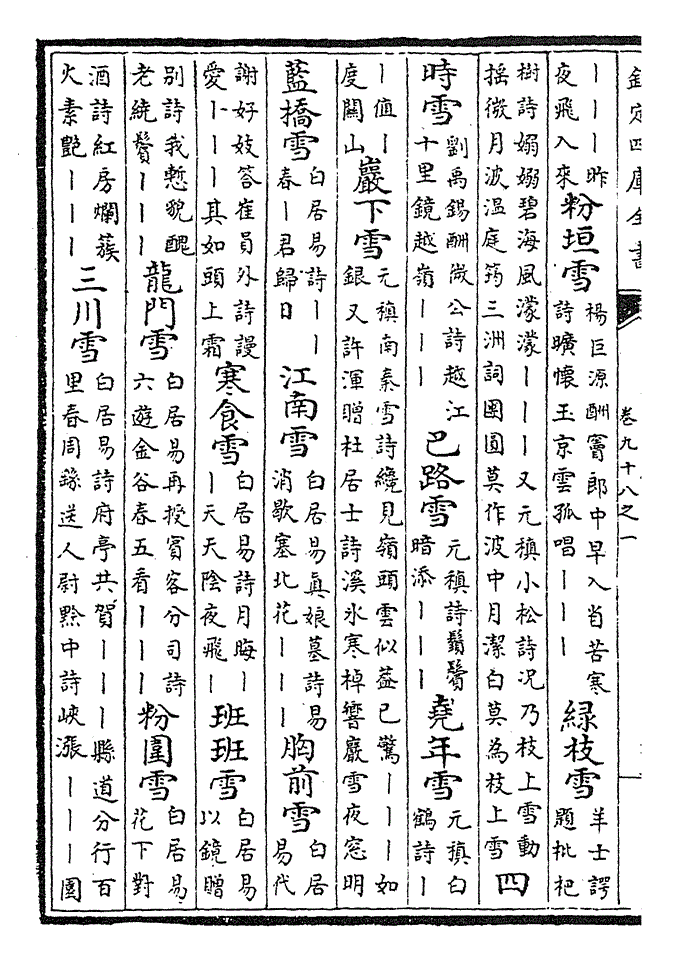 欽定四庫全書
卷九十八之一
｜｜｜昨
夜飛入來
粉垣雪
楊巨源酬竇郎中早入省苦寒
詩曠懷玉京雲孤唱｜｜｜
緑枝雪
羊士諤
題枇杷
樹詩嫋嫋碧海風濛濛｜｜｜又元稹小松詩况乃枝上雪動
揺微月波温庭筠三洲詞團圓莫作波中月潔白莫為枝上雪
四
時雪
劉禹錫酬微公詩越江
十里鏡越嶺｜｜｜
巴路雪
元稹詩鬚鬢
暗添｜｜｜
堯年雪
元稹白
鶴詩｜
｜值｜
度關山
巖下雪
元稹南秦雪詩纔見嶺頭雲似葢已驚｜｜｜如
銀又許渾贈杜居士詩溪氷寒棹響巖雪夜窓明
藍橋雪
白居易詩｜｜
春｜君歸日
江南雪
白居易真娘墓詩易
消歇塞北花｜｜｜
胸前雪
白居
易代
謝好妓答崔員外詩謾
愛｜｜｜其如頭上霜
寒食雪
白居易詩月晦｜
｜天天陰夜飛｜
班班雪
白居易
以鏡贈
别詩我慙貌醜
老統鬢｜｜｜
龍門雪
白居易再授賓客分司詩
六遊金谷春五看｜｜｜
粉團雪
白居易
花下對
酒詩紅房爛蔟
火素艶｜｜｜
三川雪
白居易詩府亭共賀｜｜｜縣道分行百
里春周繇送人尉黔中詩峽漲｜｜｜園